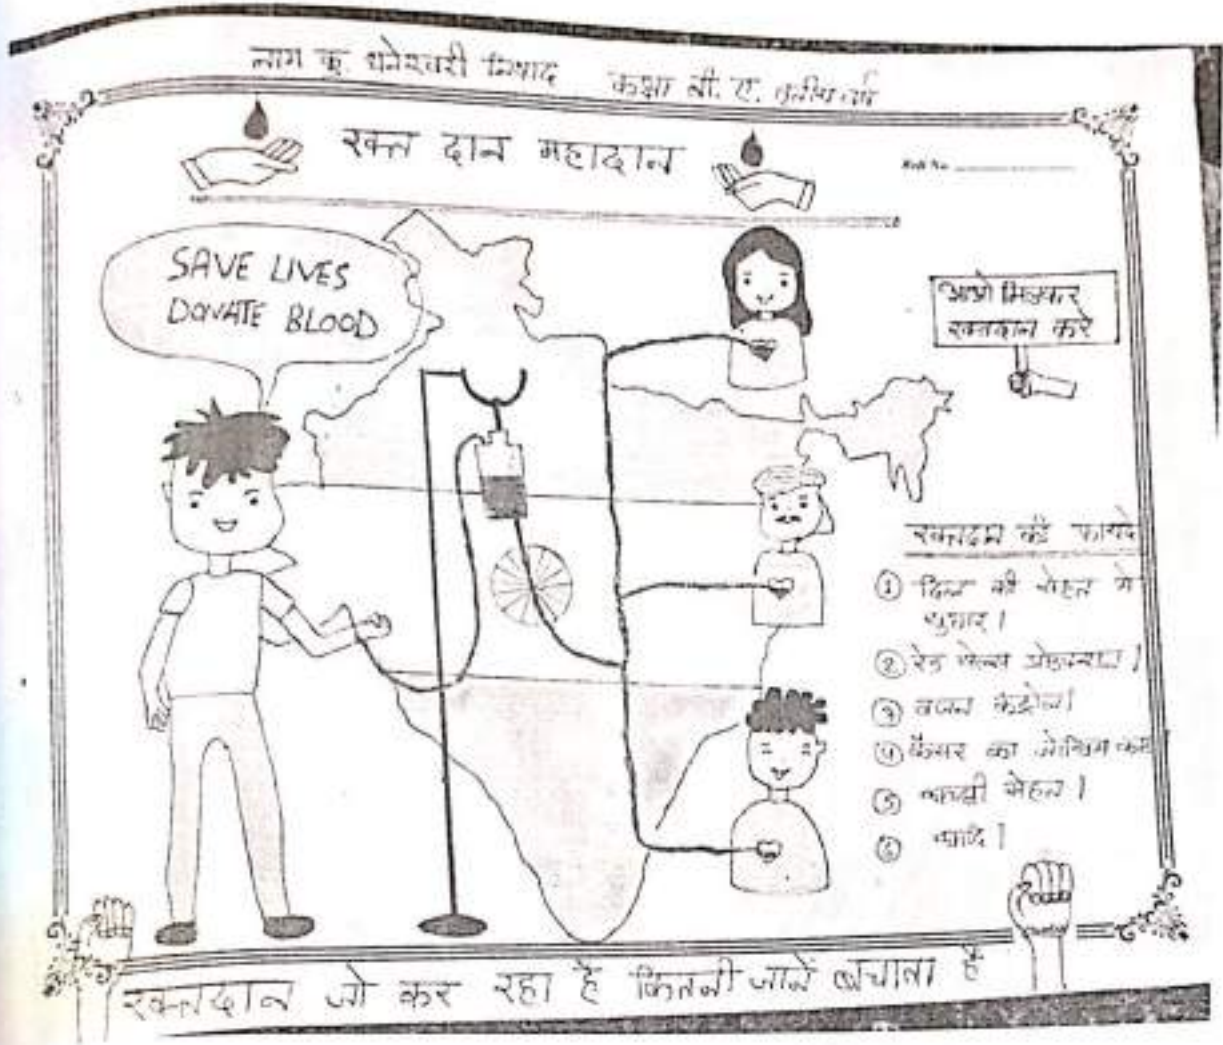 नाम कु. धनेश्वरी निषाद कक्षा बी. ए. तृतीय वर्ष
रक्त दान महादान
Roll No.
SAVE LIVES
DONATE BLOOD
आओ मिलकर
रक्तदान करे
रक्तदान के फायदे
① दिल की सेहत मे
सुधार।
② रेड सेल्स प्रोडक्शन।
③ वजन कंट्रोल।
④ कैंसर का जोखिम कम
⑤ अच्छी सेहत।
⑥ आदि।
रक्तदान जो कर रहा है कितनी जानें बचाता है